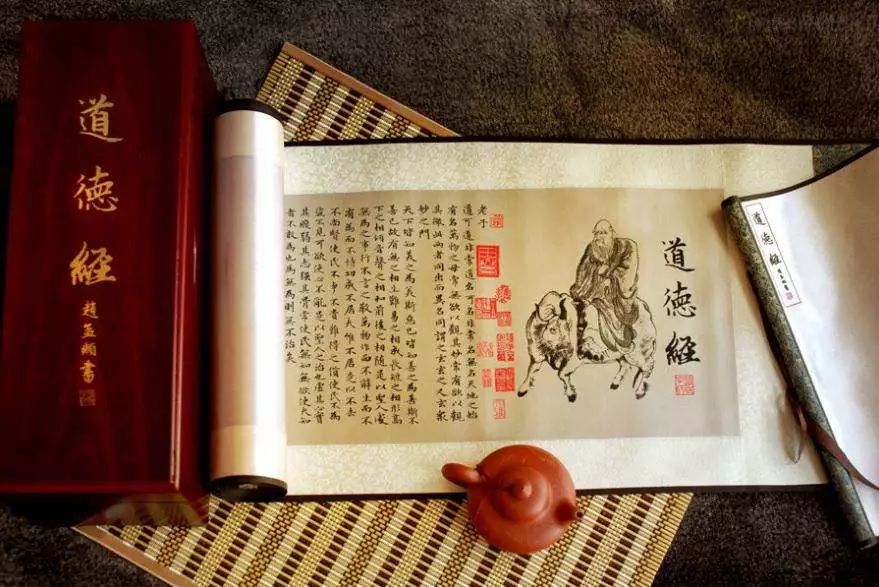 道德經
趙孟頫書
道德經
道德經
老子
道可道非常道名可名非常名無名天地之始
有名萬物之母常無欲以觀其妙常有欲以觀
其徼此兩者同出而異名同謂之玄玄之又玄衆
妙之門
天下皆知美之為美斯惡已皆知善之為善斯不
善已故有無之相生難易之相成長短之相形高
下之相傾音聲之相和前後之相隨是以聖人處
無為之事行不言之教萬物作而不辭生而不
有為而不恃功成不居夫惟不居是以不去
不尚賢使民不爭不貴難得之貨使民不為
盜不見可欲使心不亂是以聖人之治也虛其心實
其腹弱其志強其骨常使民無知無欲使夫知
者不敢為也為無為則無不治矣